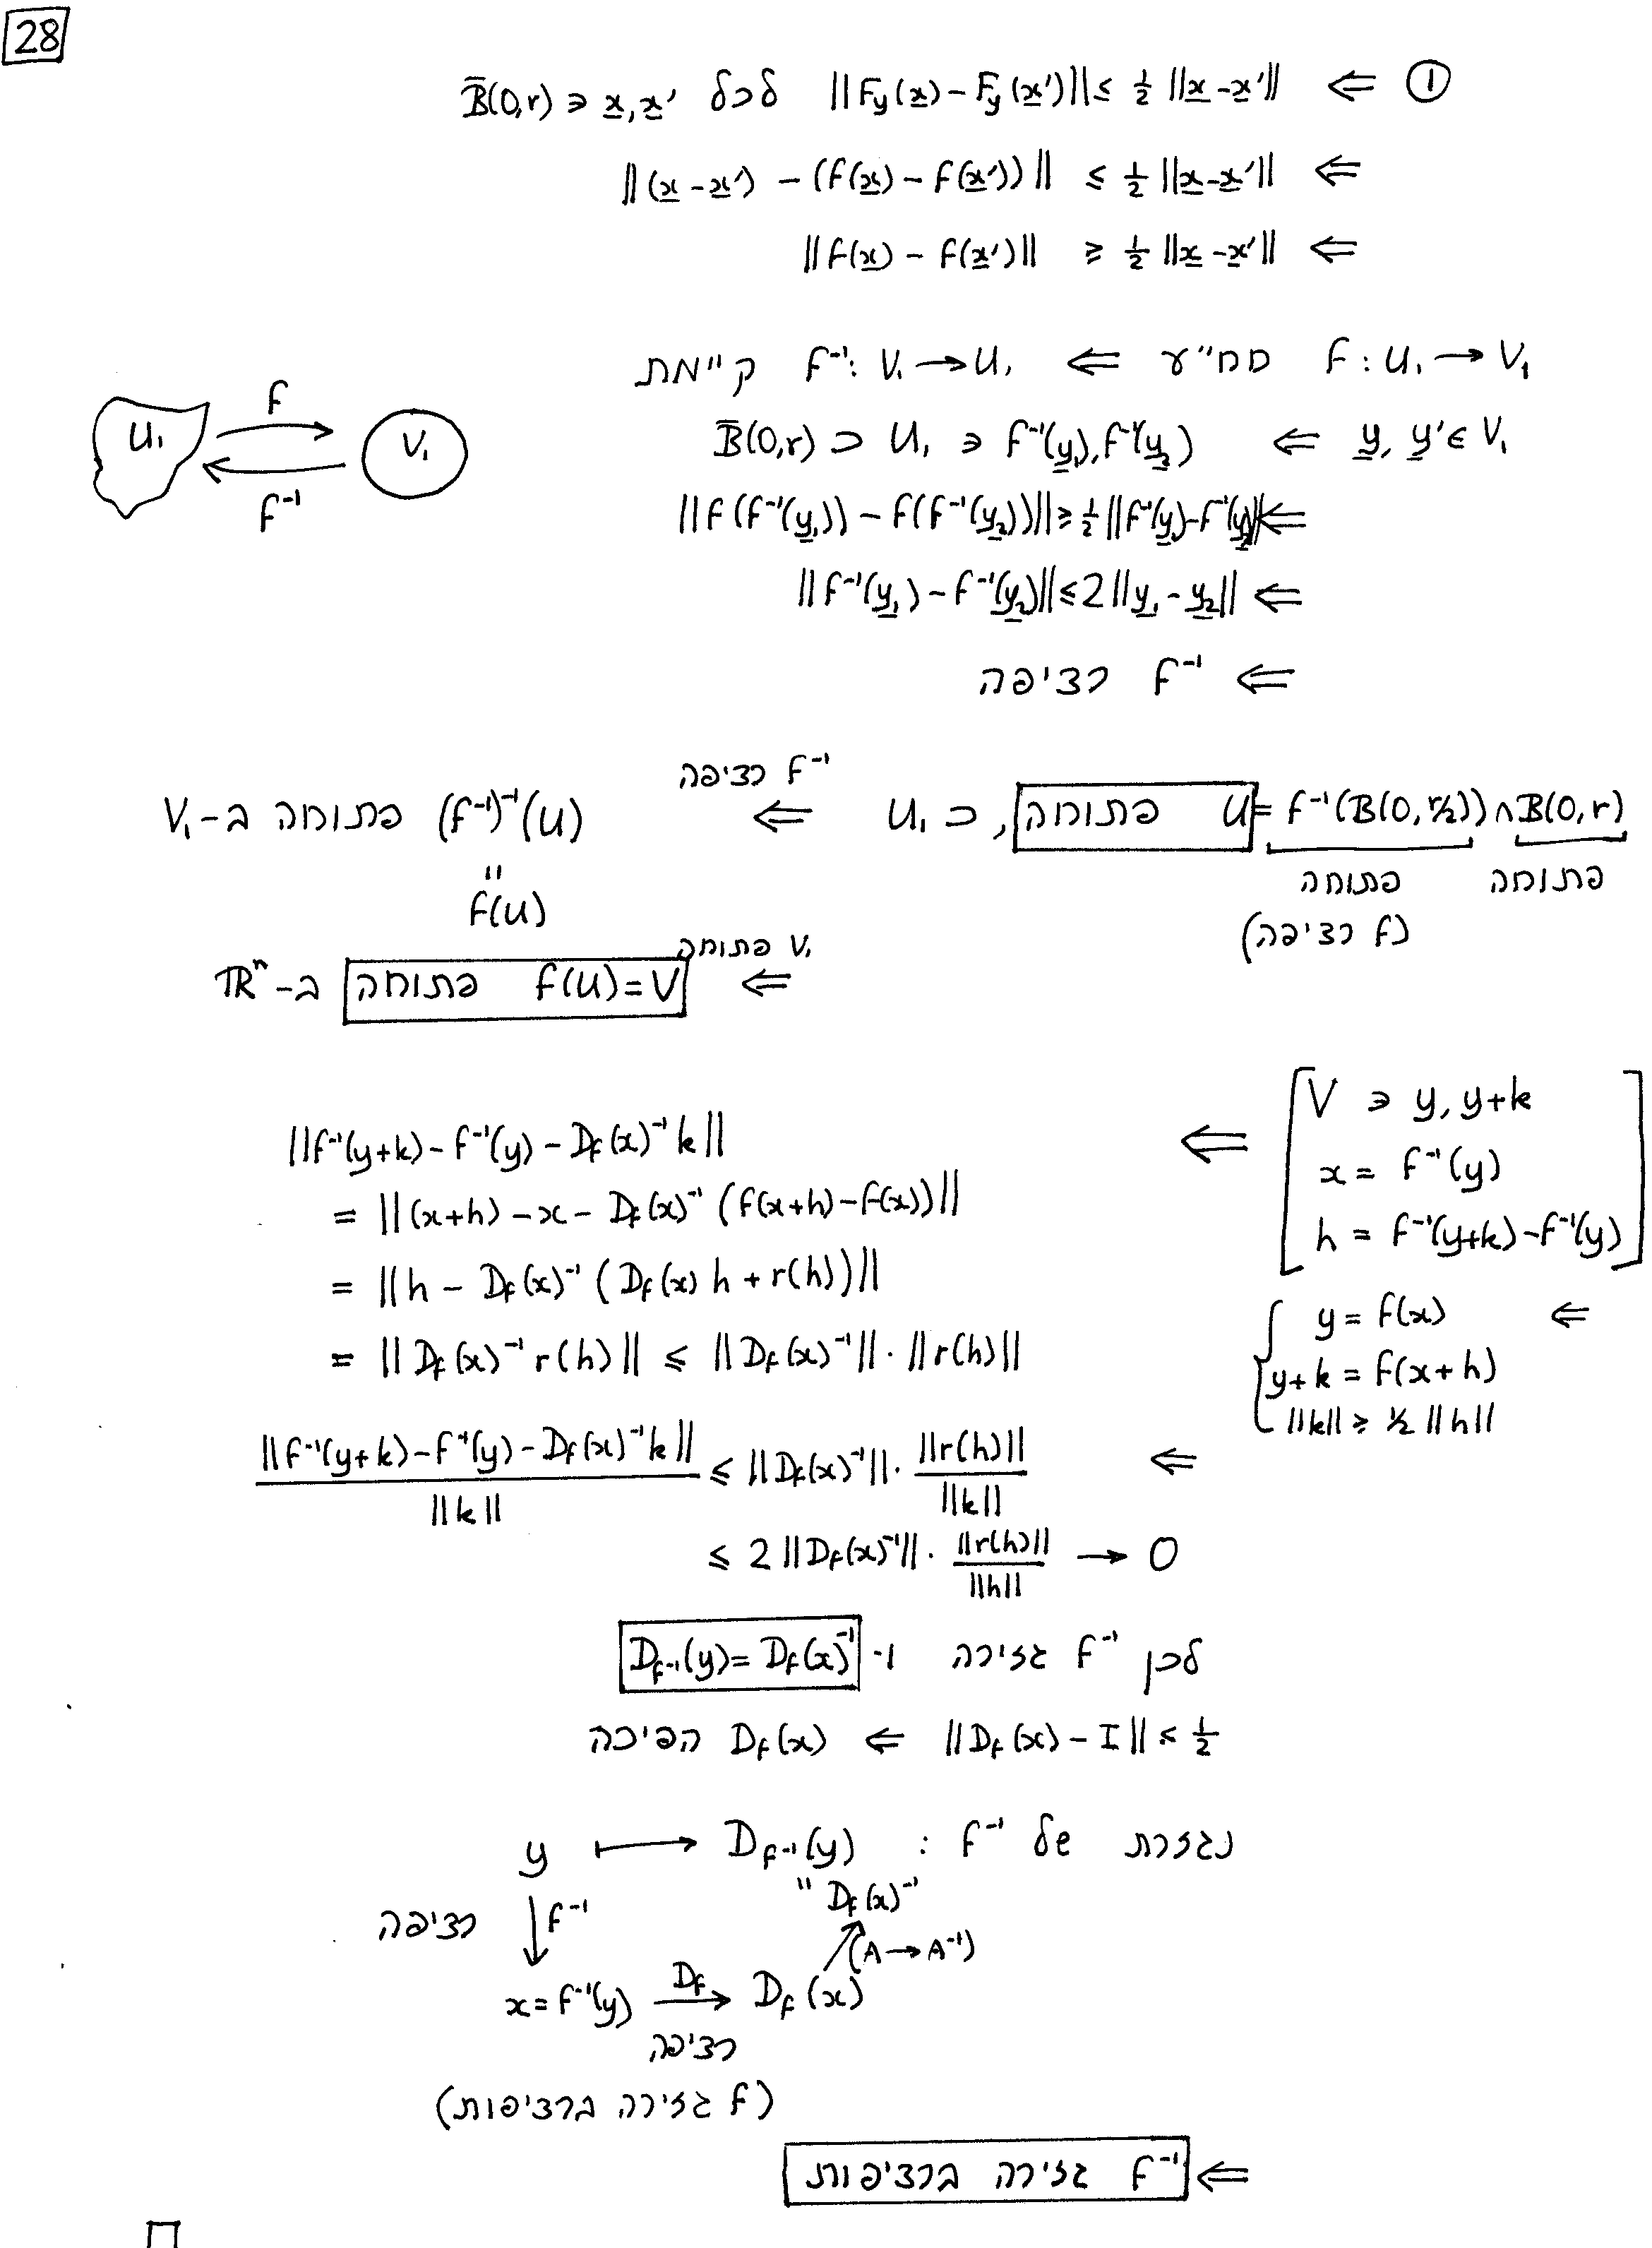 28
① ⇐ ||F_y(x) - F_y(x')|| ≤ ½ ||x - x'|| לכל B̄(0,r) ∋ x, x'
⇐ ||(x - x') - (f(x) - f(x'))|| ≤ ½ ||x - x'||
⇐ ||f(x) - f(x')|| ≥ ½ ||x - x'||
f : U₁ → V₁ חח"ע ⇐ f⁻¹ : V₁ → U₁ קיימת
U₁ f V₁ f⁻¹
y, y' ∈ V₁ ⇐ B̄(0,r) ⊃ U₁ ∋ f⁻¹(y₁), f⁻¹(y₂)
⇐ ||f(f⁻¹(y₁)) - f(f⁻¹(y₂))|| ≥ ½ ||f⁻¹(y₁) - f⁻¹(y₂)||
⇐ ||f⁻¹(y₁) - f⁻¹(y₂)|| ≤ 2 ||y₁ - y₂||
⇐ f⁻¹ רציפה
U = f⁻¹(B(0, r/2)) ∩ B(0,r) פתוחה, U₁ ⊃ ⇐ f⁻¹ רציפה (f⁻¹)⁻¹(U) פתוחה ב-V₁
פתוחה פתוחה
" f(U)
(f רציפה)
⇐ V₁ פתוחה f(U) = V פתוחה ב-ℝⁿ
[ V ∋ y, y+k
x = f⁻¹(y)
h = f⁻¹(y+k) - f⁻¹(y) ] ⇐
⇐ { y = f(x)
y+k = f(x+h)
||k|| ≥ ½ ||h||
||f⁻¹(y+k) - f⁻¹(y) - D_f(x)⁻¹ k||
= ||(x+h) - x - D_f(x)⁻¹ (f(x+h) - f(x))||
= ||h - D_f(x)⁻¹ (D_f(x) h + r(h))||
= ||D_f(x)⁻¹ r(h)|| ≤ ||D_f(x)⁻¹|| · ||r(h)||
⇐ ||f⁻¹(y+k) - f⁻¹(y) - D_f(x)⁻¹ k|| / ||k|| ≤ ||D_f(x)⁻¹|| · ||r(h)|| / ||k||
≤ 2 ||D_f(x)⁻¹|| · ||r(h)|| / ||h|| → 0
לכן f⁻¹ גזירה ו- D_{f⁻¹}(y) = D_f(x)⁻¹
||D_f(x) - I|| ≤ ½ ⇐ D_f(x) הפיכה
נגזרת של f⁻¹ : y ↦ D_{f⁻¹}(y)
" D_f(x)⁻¹
רציפה ↓ f⁻¹
(A → A⁻¹)
x = f⁻¹(y) D_f → D_f(x)
רציפה
(f גזירה ברציפות)
⇐ f⁻¹ גזירה ברציפות
□